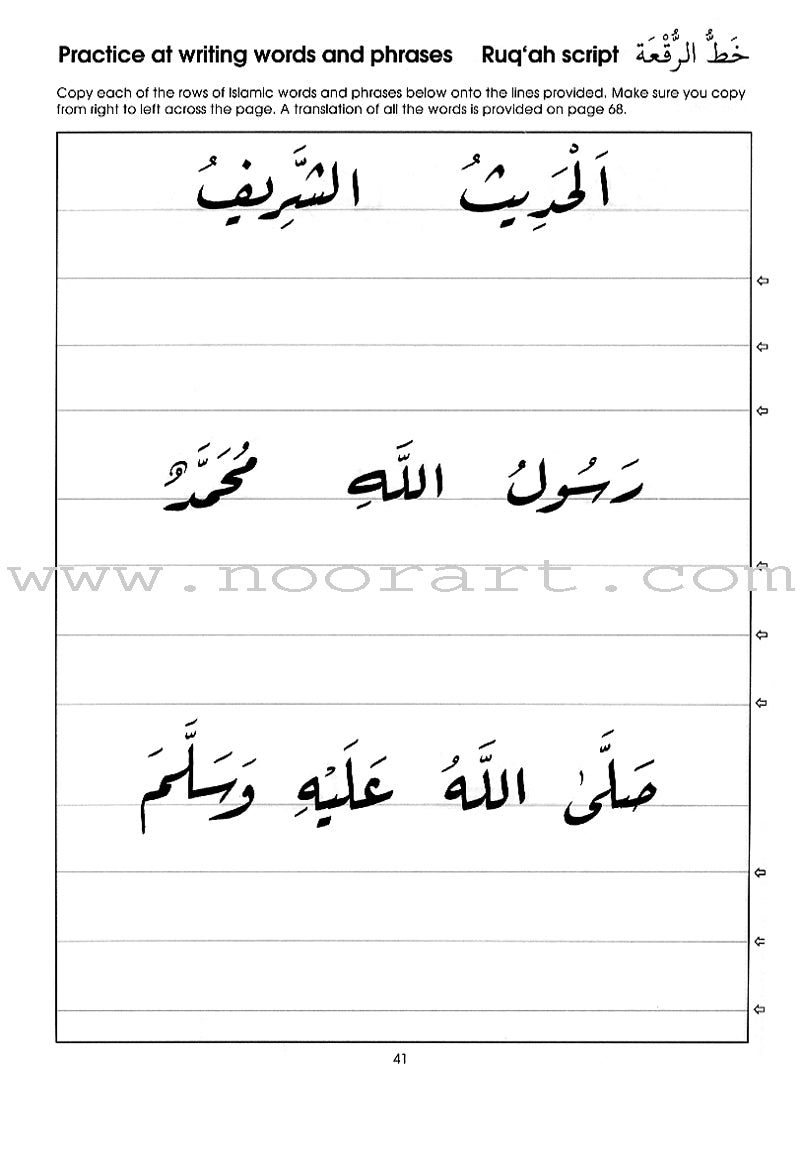 Practice at writing words and phrases Ruq‘ah script خَطُّ الرُّقْعَة
Copy each of the rows of Islamic words and phrases below onto the lines provided. Make sure you copy
from right to left across the page. A translation of all the words is provided on page 68.
اَلْحَدِيثُ الشَّرِيفُ
رَسُولُ اللَّهِ مُحَمَّدٌ
www.noorart.com
صَلَّىٰ اللَّهُ عَلَيْهِ وَسَلَّمَ
41